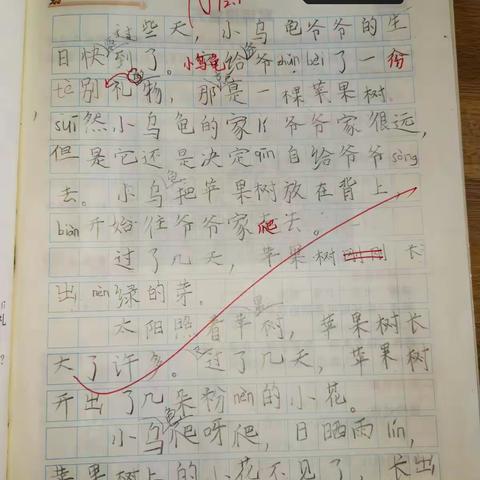 过些天，小乌龟爷爷的生
日快到了。小乌龟给爷爷zhǔn bèi了一份
tè别的礼物，那是一棵苹果树。
suī然小乌龟的家lí爷爷家很远，
但是它还是决定qīn自给爷爷sòng
去。小乌龟把苹果树放在背上，
biàn开始往爷爷家爬去。
过了几天，苹果树长
出nèn绿的芽。
太阳照着苹果树，苹果树长
大了许多。又过了几天，苹果树
开出了几朵粉nèn的小花。
小乌龟爬呀爬，日晒雨lín，
苹果树上的小花不见了，长出